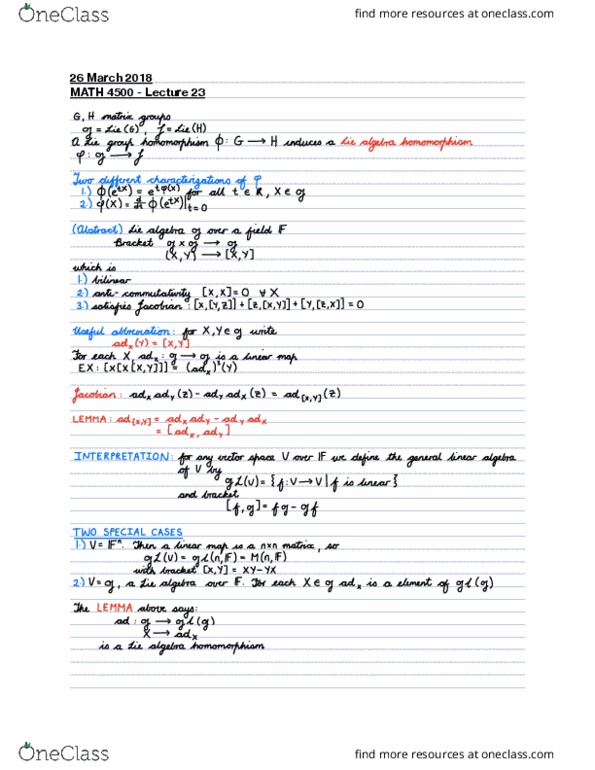 OneClass
find more resources at oneclass.com
26 March 2018
MATH 4500 - Lecture 23
G, H matrix groups
g = Lie(G), f = Lie(H)
A Lie group homomorphism Φ: G → H induces a Lie algebra homomorphism
φ: g → f
Two different characterizations of φ
1.) Φ(e^{tX}) = e^{tφ(X)} for all t ∈ R, X ∈ g
2.) φ(X) = d/dt Φ(e^{tX})|_{t=0}
(Abstract) Lie algebra g over a field F
Bracket g x g → g
(X,Y) → [X,Y]
which is
1.) bilinear
2.) anti-commutativity [X,X] = 0 ∀ X
3.) satisfies Jacobian: [X,[Y,Z]] + [Z,[X,Y]] + [Y,[Z,X]] = 0
Useful abbreviation: for X,Y ∈ g write
ad_x(Y) = [X,Y]
For each X, ad_x: g → g is a linear map
EX: [X[X[X,Y]]] = (ad_x)³(Y)
Jacobian: ad_x ad_y(Z) - ad_y ad_x(Z) = ad_[X,Y](Z)
LEMMA: ad_[X,Y] = ad_x ad_y - ad_y ad_x
= [ad_x, ad_y]
INTERPRETATION: for any vector space V over F we define the general linear algebra
of V by
gl(V) = {f: V → V | f is linear}
and bracket
[f,g] = fg - gf
TWO SPECIAL CASES
1.) V = Fⁿ. Then a linear map is a nxn matrix, so
gl(V) = gl(n,F) = M(n,F)
with bracket [X,Y] = XY - YX
2.) V = g, a Lie algebra over F. For each X ∈ g ad_x is a element of gl(g)
The LEMMA above says:
ad: g → gl(g)
X → ad_x
is a Lie algebra homomorphism
OneClass
find more resources at oneclass.com